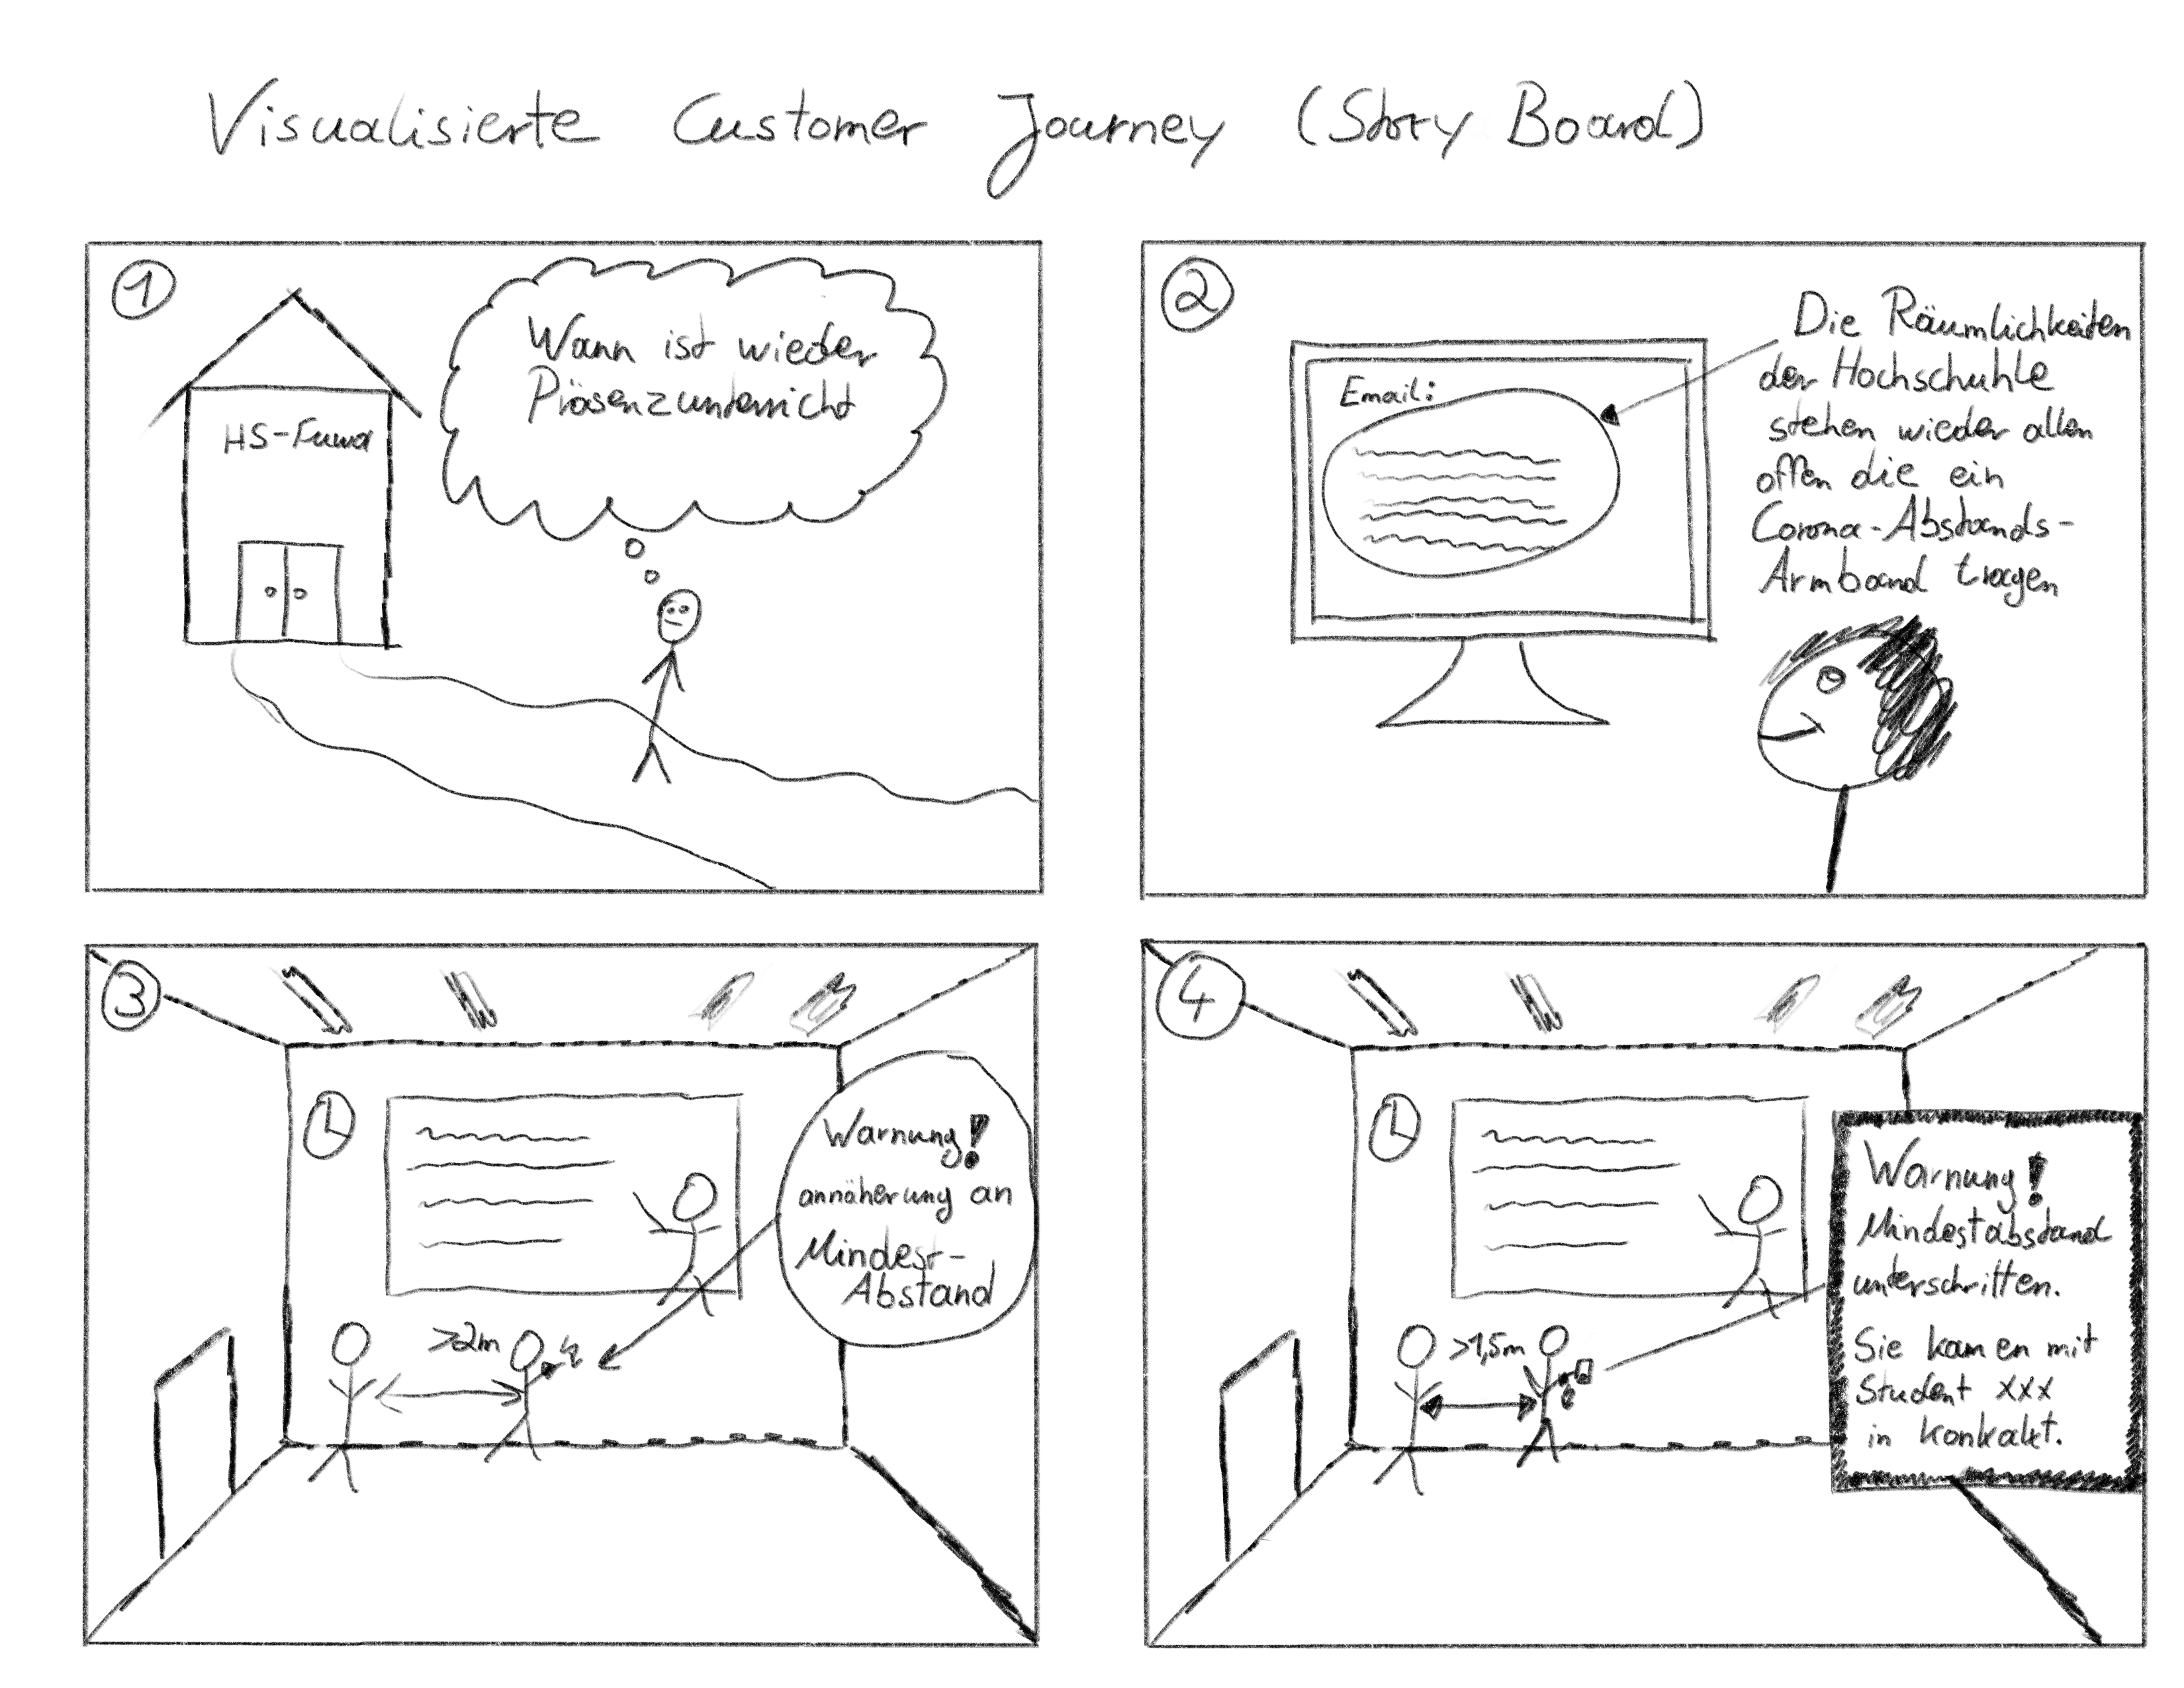 Visualisierte Customer Journey (Story Board)
1
Wann ist wieder
Präsenzunterricht
HS-Fuwa
2
Email:
Die Räumlichkeiten
der Hochschuhle
stehen wieder allen
offen die ein
Corona-Abstands-
Armband tragen
3
Warnung!
annäherung an
Mindest-
Abstand
>2m
4
Warnung!
Mindestabstand
unterschritten.
Sie kamen mit
Student xxx
in Konkakt.
>1,5m